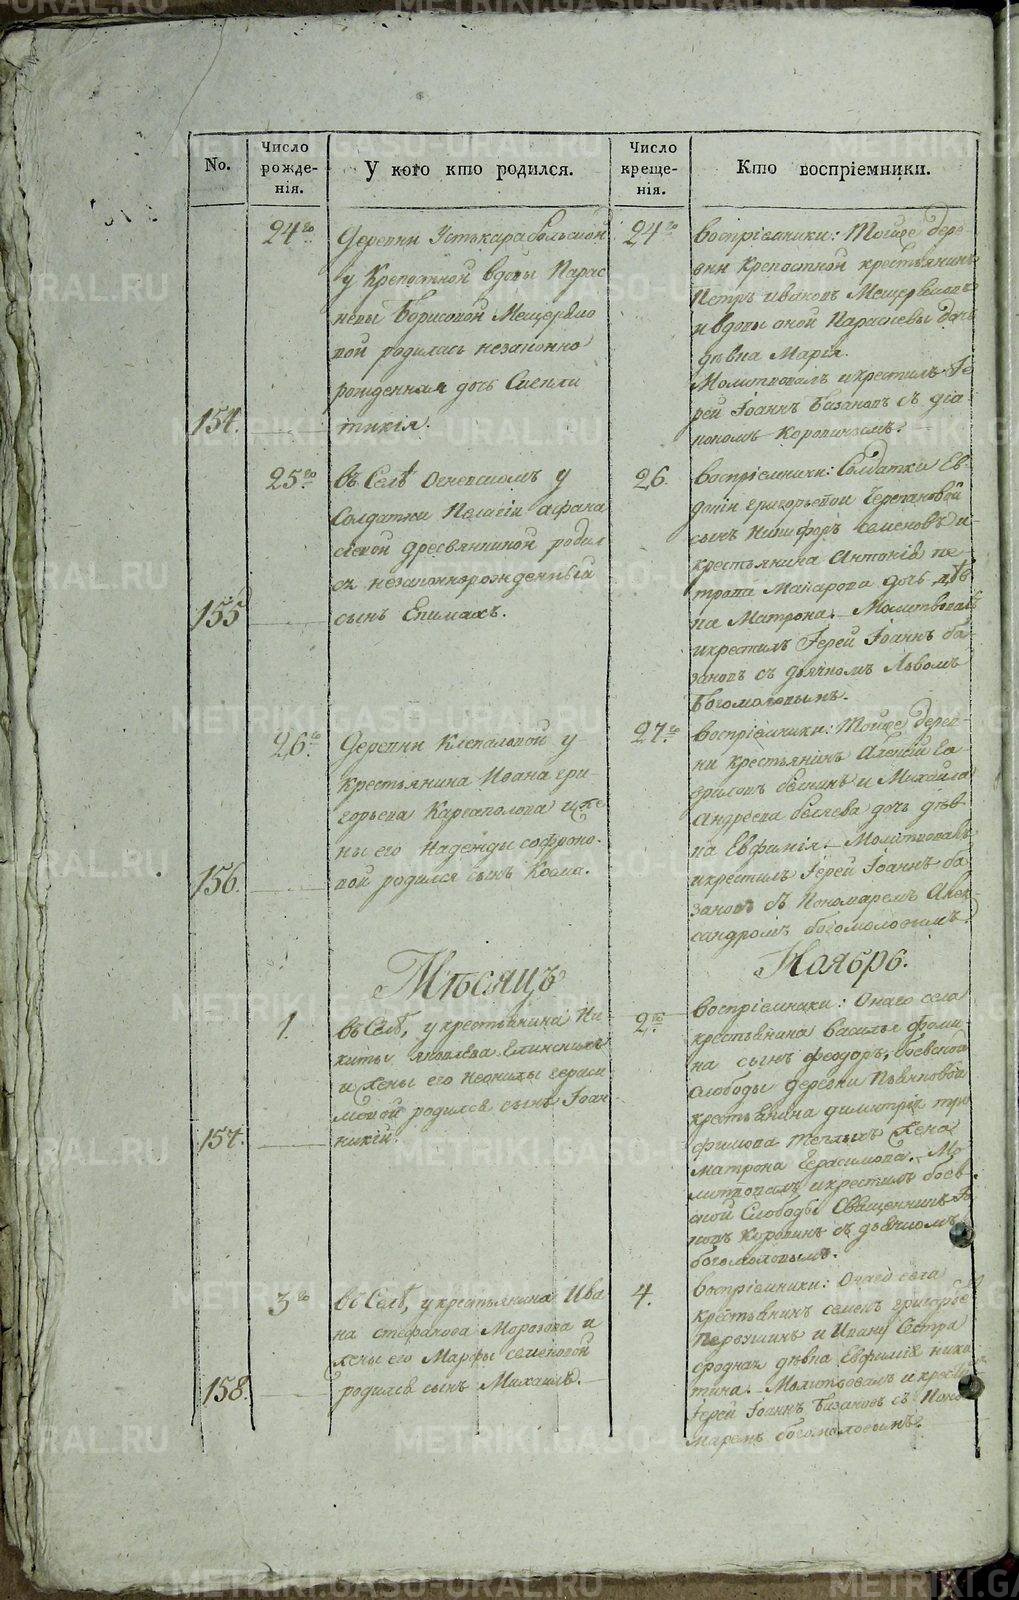 No.
Число рожде-нія.
У кого кто родился.
Число креще-нія.
Кто воспріемники.
154.
24го
Деревни Устькарабольской
у Крепостной вдовы Парас
кевы Борисовой Мещеряко
вой родилась незаконно
рожденная дочь Синкли
тикія.
24го
воспріемники: Тойже дере-
вни крепостной крестьянинъ
Петръ Ивановъ Мещеряковъ
и вдовы оной Параскевы дочь
дѣвка Марія.
Молитвовалъ и крестилъ Іе
рей Іоаннъ Базановъ съ діа
кономъ Коровинымъ.
155
25го
въ Селѣ Огневскомъ у
Солдатки Пелагіи Афана
сіевой Дресвянниковой родил
ся незаконнорожденный
сынъ Епимахъ.
26.
воспріемники: Солдатки Ев-
докіи григорьевой Черепановой
сынъ Никифоръ Семеновъ и
крестьянина Антонія пе-
трова Макарова дочь дѣв
ка Матрона. Молитвовалъ
и крестилъ Іерей Іоаннъ ба-
зановъ съ дьячкомъ Львомъ
Богомоловымъ.
156.
26го
Деревни Клепаловой у
крестьянина Ивана гри-
горьева Карсаполова и же
ны его Надежды софроно-
вой родился сынъ Косма.
27го
воспріемники: Тойже дерев-
ни крестьянинъ Алексій Га
вриловъ и Михайла
Андреева беляева дочь дѣв-
ка Евфимія. Молитвовалъ
и крестилъ Іерей Іоаннъ ба-
зановъ съ Пономаремъ Алек-
сандромъ богомоловымъ.
Мѣсяцъ
Ноябрь.
157.
1.
въ Селѣ, у крестьянина Ни
киты яковлева Елинскихъ
и жены его Неонилы гераси
мовой родился сынъ Іоан
никій.
2го
воспріемники: Онаго села
крестьянина Василья Фоми
на сынъ феодоръ, боевской
слободы деревни Пьянковой
крестьянина димитрія тро
фимова Теплыхъ жена
матрона Герасимова. Мо
литвовалъ и крестилъ боев-
ской Слободы Священникъ Іа
ковъ Коровинъ съ дьячкомъ
богомоловымъ.
158.
3го
въ Селѣ, у крестьянина Ива
на стефанова Морозова и
жены его Марфы семеновой
родился сынъ Михаилъ.
4.
воспріемники: Онаго села
крестьянинъ семенъ григорьевъ
Первушинъ и Ивану Сестра
сродная дѣвка Евфимія ники
тина. Молитвовалъ и крестилъ
Іерей Іоаннъ Базановъ съ Поно
маремъ богомоловымъ.
METRIKI.GASO-URAL.RU